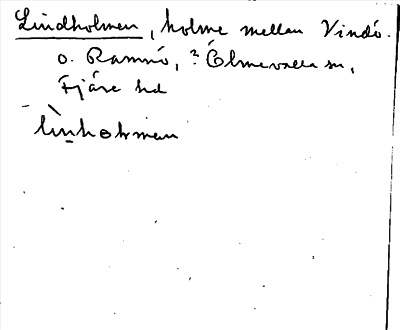 Lindholmen, holme mellan Vindö.
o. Ramnö, ? Ölmevalla sn,
Fjäre hd
lìnhολmən